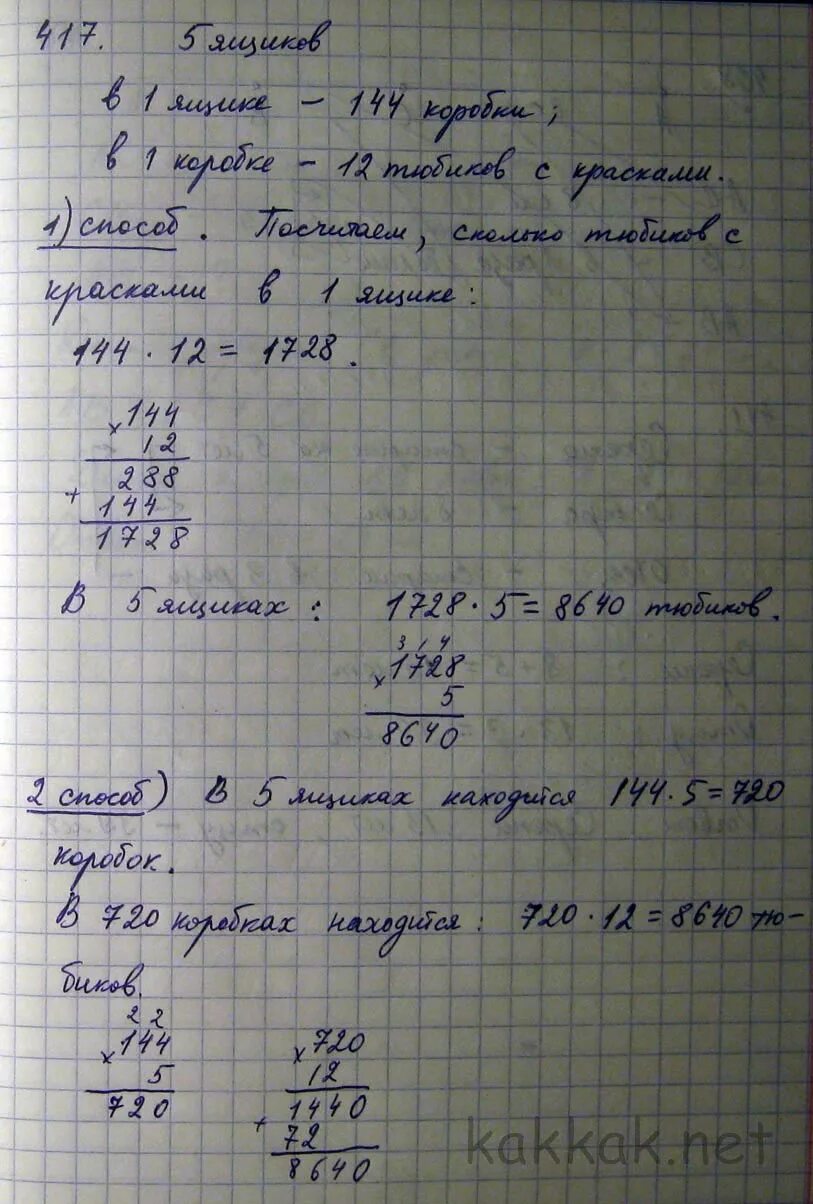 417. 5 ящиков
в 1 ящике – 144 коробки;
в 1 коробке – 12 тюбиков с красками.
1) способ. Посчитаем, сколько тюбиков с
красками в 1 ящике:
144 · 12 = 1728.
× 144
12
288
+ 144
1728
В 5 ящиках: 1728 · 5 = 8640 тюбиков.
3 1 4
× 1728
5
8640
2 способ) В 5 ящиках находится 144 · 5 = 720
коробок.
В 720 коробках находится: 720 · 12 = 8640 тю-
биков.
2 2
× 144 × 720
5 12
720 1440
+ 72
8640
kakkak.net